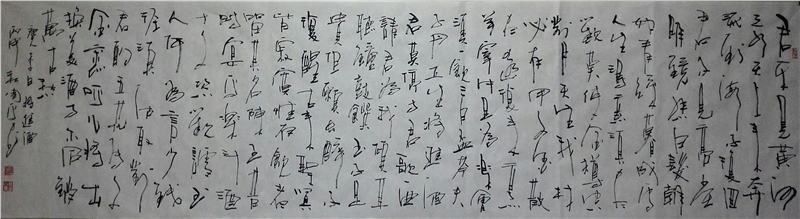 君不見黃河
之水天上來奔
流到海不復回
君不見高堂
明鏡悲白髮朝
如青絲暮成雪
人生得意須尽
歡莫使金樽空
對月天生我材
必有用千金散
尽還復來烹
羊宰牛且為樂會
須一飲三百杯岑夫
子丹丘生將進酒
君莫停与君歌一曲
請君為我
聽鐘鼓饌玉不足
貴但願長醉不
復醒古來聖賢
皆寂寞惟有飲者
留其名陳王昔
時宴平樂斗酒
十千恣歡謔主
人何為言少錢
徑須沽取對
君酌五花馬千
金裘呼兒將出
換美酒与尔同銷
萬古愁
日將進酒